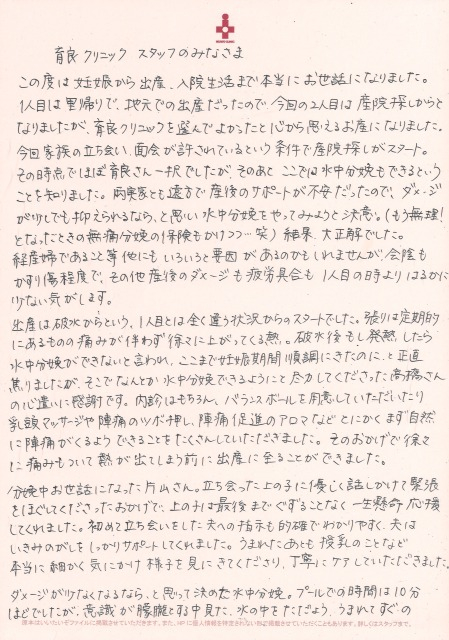 育良クリニック スタッフのみなさま
この度は妊娠から出産、入院生活まで本当にお世話になりました。
1人目は里帰りで、地元での出産だったので、今回の2人目は産院探しからと
なりましたが、育良クリニックを選んでよかったと心から思えるお産になりました。
今回家族の立ち会い、面会が許されているという条件で産院探しがスタート。
その時点でほぼ育良さん一択でしたが、そのあとここでは水中分娩もできるという
ことを知りました。両実家とも遠方で産後のサポートが不安だったので、ダメージ
が少しでも抑えられるなら、と思い水中分娩をやってみようと決意。(もう無理!
となったときの無痛分娩の保険もかけつつ…笑) 結果、大正解でした。
経産婦であること等他にもいろいろと要因があるのかもしれませんが、会陰も
かすり傷程度で、その他産後のダメージも疲労具合も1人目の時よりはるかに
少ない気がします。
出産は破水からという、1人目とは全く違う状況からのスタートでした。張りは定期的
にあるものの痛みが伴わず徐々に上がってくる熱。破水後もし発熱したら
水中分娩ができないと言われ、ここまで妊娠期間順調にきたのに、と正直
焦りましたが、そこでなんとか水中分娩できるようにと尽力してくださった高橋さん
の心遣いに感謝です。内診はもちろん、バランスボールを用意していただいたり
乳頭マッサージや陣痛のツボ押し、陣痛促進のアロマなどとにかくまず自然
に陣痛がくるようできることをたくさんしていただきました。そのおかげで徐々
に痛みもついて熱が出てしまう前に出産に至ることができました。
分娩中お世話になった片山さん。立ち会った上の子に優しく話しかけて緊張
をほぐしてくださったおかげで、上の子は最後までぐずることなく一生懸命応援
してくれました。初めて立ち会いをした夫への指示も的確でわかりやすく、夫は
いきみのがしをしっかりサポートしてくれました。うまれたあとも授乳のことなど
本当に細かく気にかけ様子を見にきてくださり、丁寧にケアしていただきました。
ダメージが少なくなるなら、と思って決めた水中分娩。プールでの時間は10分
ほどでしたが、意識が朦朧とする中見た、水の中をただよう、うまれてすぐの